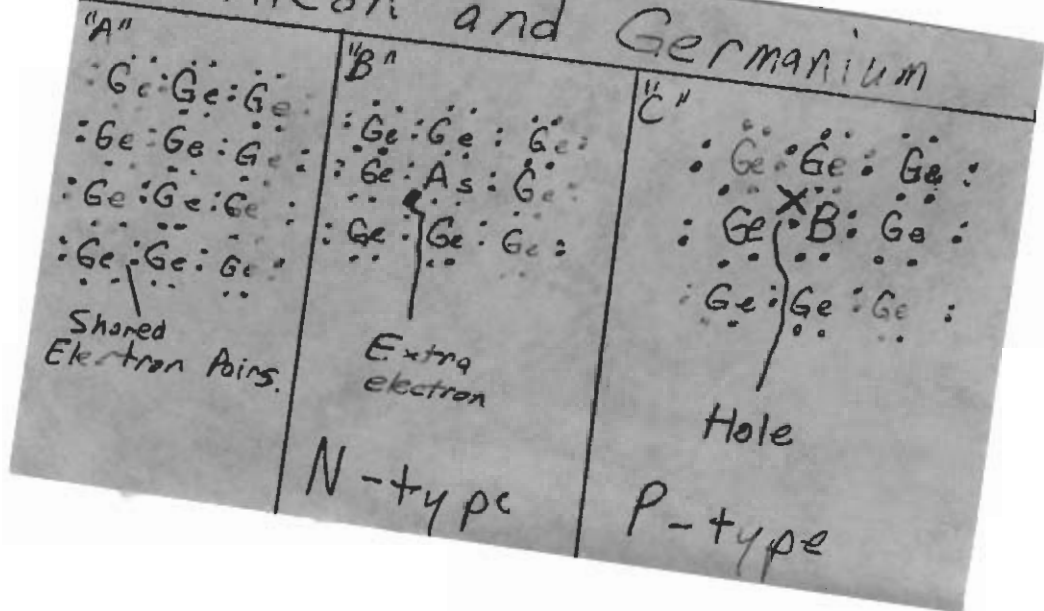 and Germanium
"A"
Ge:Ge:Ge
:Ge:Ge:Ge:
:Ge:Ge:Ge:
:Ge:Ge:Ge:
Shared
Electron Pairs.
"B"
:Ge:Ge:Ge:
:Ge:As:Ge:
:Ge:Ge:Ge:
Extra
electron
N-type
"C"
:Ge:Ge:Ge:
X
:Ge:B:Ge:
:Ge:Ge:Ge:
Hole
P-type